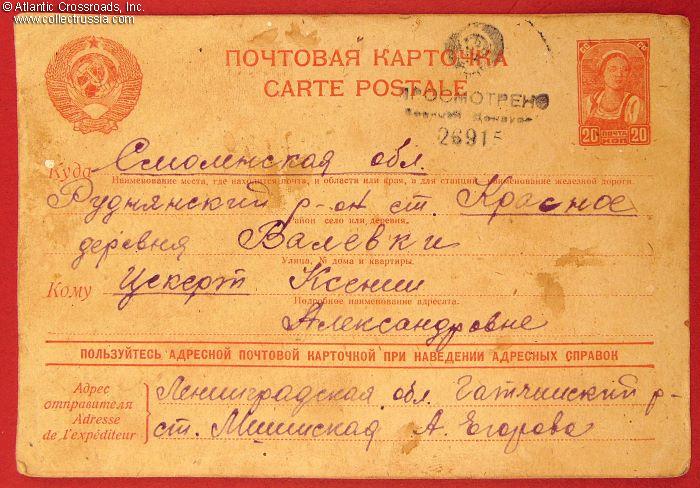 © Atlantic Crossroads, Inc.
www.collectrussia.com
ПОЧТОВАЯ КАРТОЧКА
CARTE POSTALE
ПРОСМОТРЕНО
Военной Цензурой
26915
20 ПОЧТА 20
КОП
Куда Смоленская обл.
Наименование места, где находится почта, и области или края, а для станций наименование железной дороги.
Руднянский р-он ст. Красное
Район село или деревня.
деревня Валевки
Улица, № дома и квартиры.
Кому Цекерт Ксении
Подробное наименование адресата.
Александровне
ПОЛЬЗУЙТЕСЬ АДРЕСНОЙ ПОЧТОВОЙ КАРТОЧКОЙ ПРИ НАВЕДЕНИИ АДРЕСНЫХ СПРАВОК
Адрес отправителя
Adresse de l'expéditeur
Ленинградская обл. Гатчинский р-
ст. А. Егорова